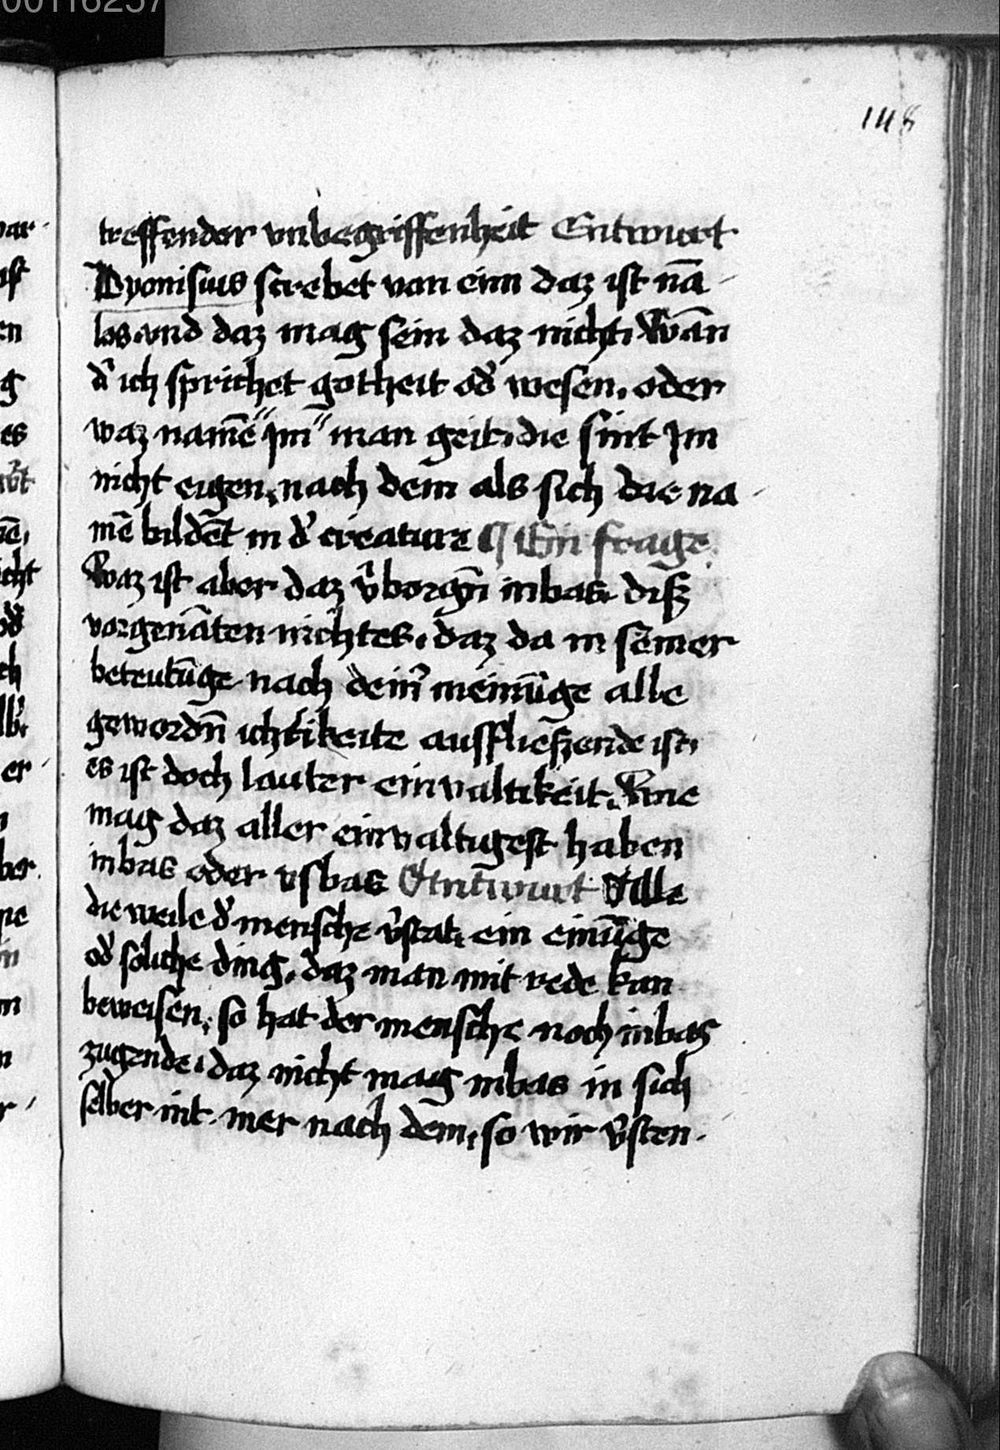 00116257
148
treffender vnbegriffenheit Entwurt
Dyonisius screbet van eim daz ist nā-
los vnd daz mag sein daz nicht, Wān
d' ich sprichet gotheit od' wesen, oder
waz namē im man geit, die sint Im
nicht eigen, nach dem als sich die na-
mē bildēt in d' creature ¶ Ein frage
Waz ist aber daz v'borgn̄ inbas diſz
vorgenāten nichtes, daz da in seiner
beteutūge nach dein' meinūge alle
gewordn̄ ichtikeite ausflieſzende ist,
es ist doch lauter einvaltikeit, Wie
mag daz aller einvaltigest haben
inbas oder vsbas Antwurt Alle
die weile d' mensche v'stat, ein einūge
od' soliche ding, daz man mit rede kan
beweisen, so hat der mensche noch inbas
zugende, daz nicht mag inbas in sich
selber int mer nach dem, so wir v'sten-